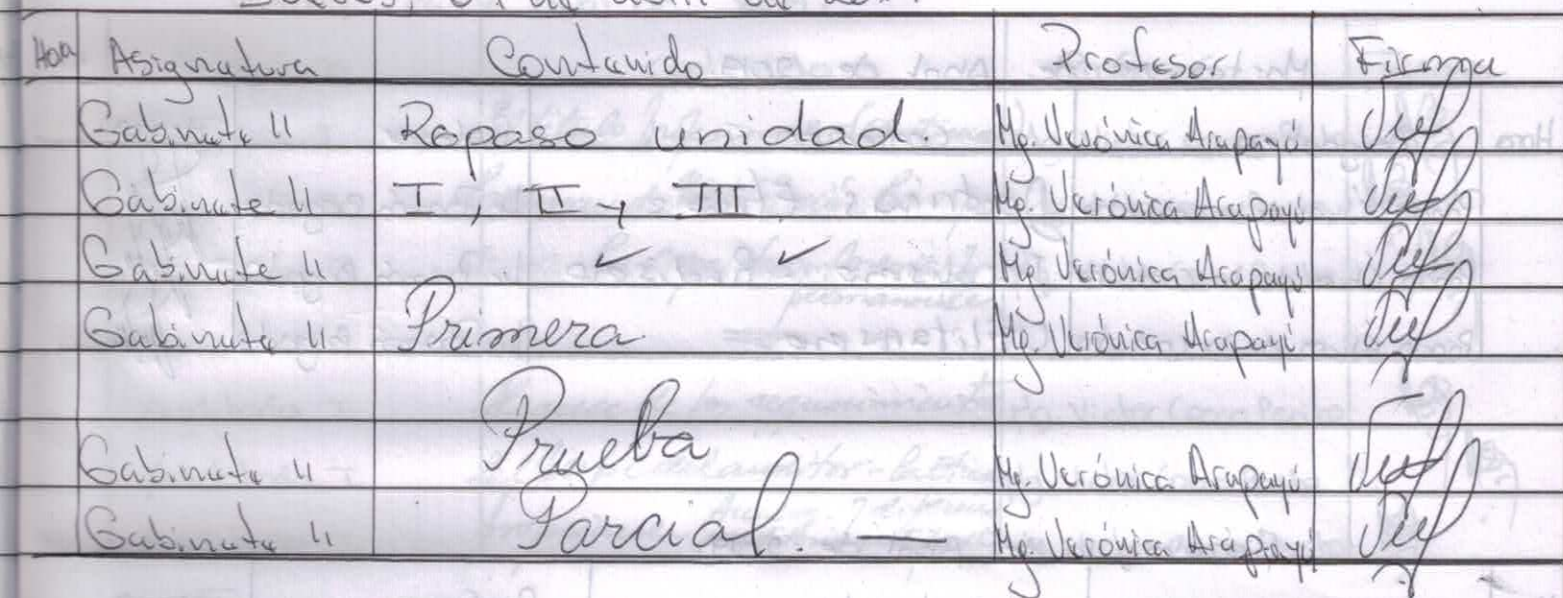 Hora Asignatura Contenido Profesor Firma
Gabinete II Repaso unidad. Mg. Verónica Arapayú
Gabinete II I, II y III. Mg. Verónica Arapayú
Gabinete II ✓ ✓ Mg. Verónica Arapayú
Gabinete II Primera Mg. Verónica Arapayú
Gabinete II Prueba Mg. Verónica Arapayú
Gabinete II Parcial. — Mg. Verónica Arapayú